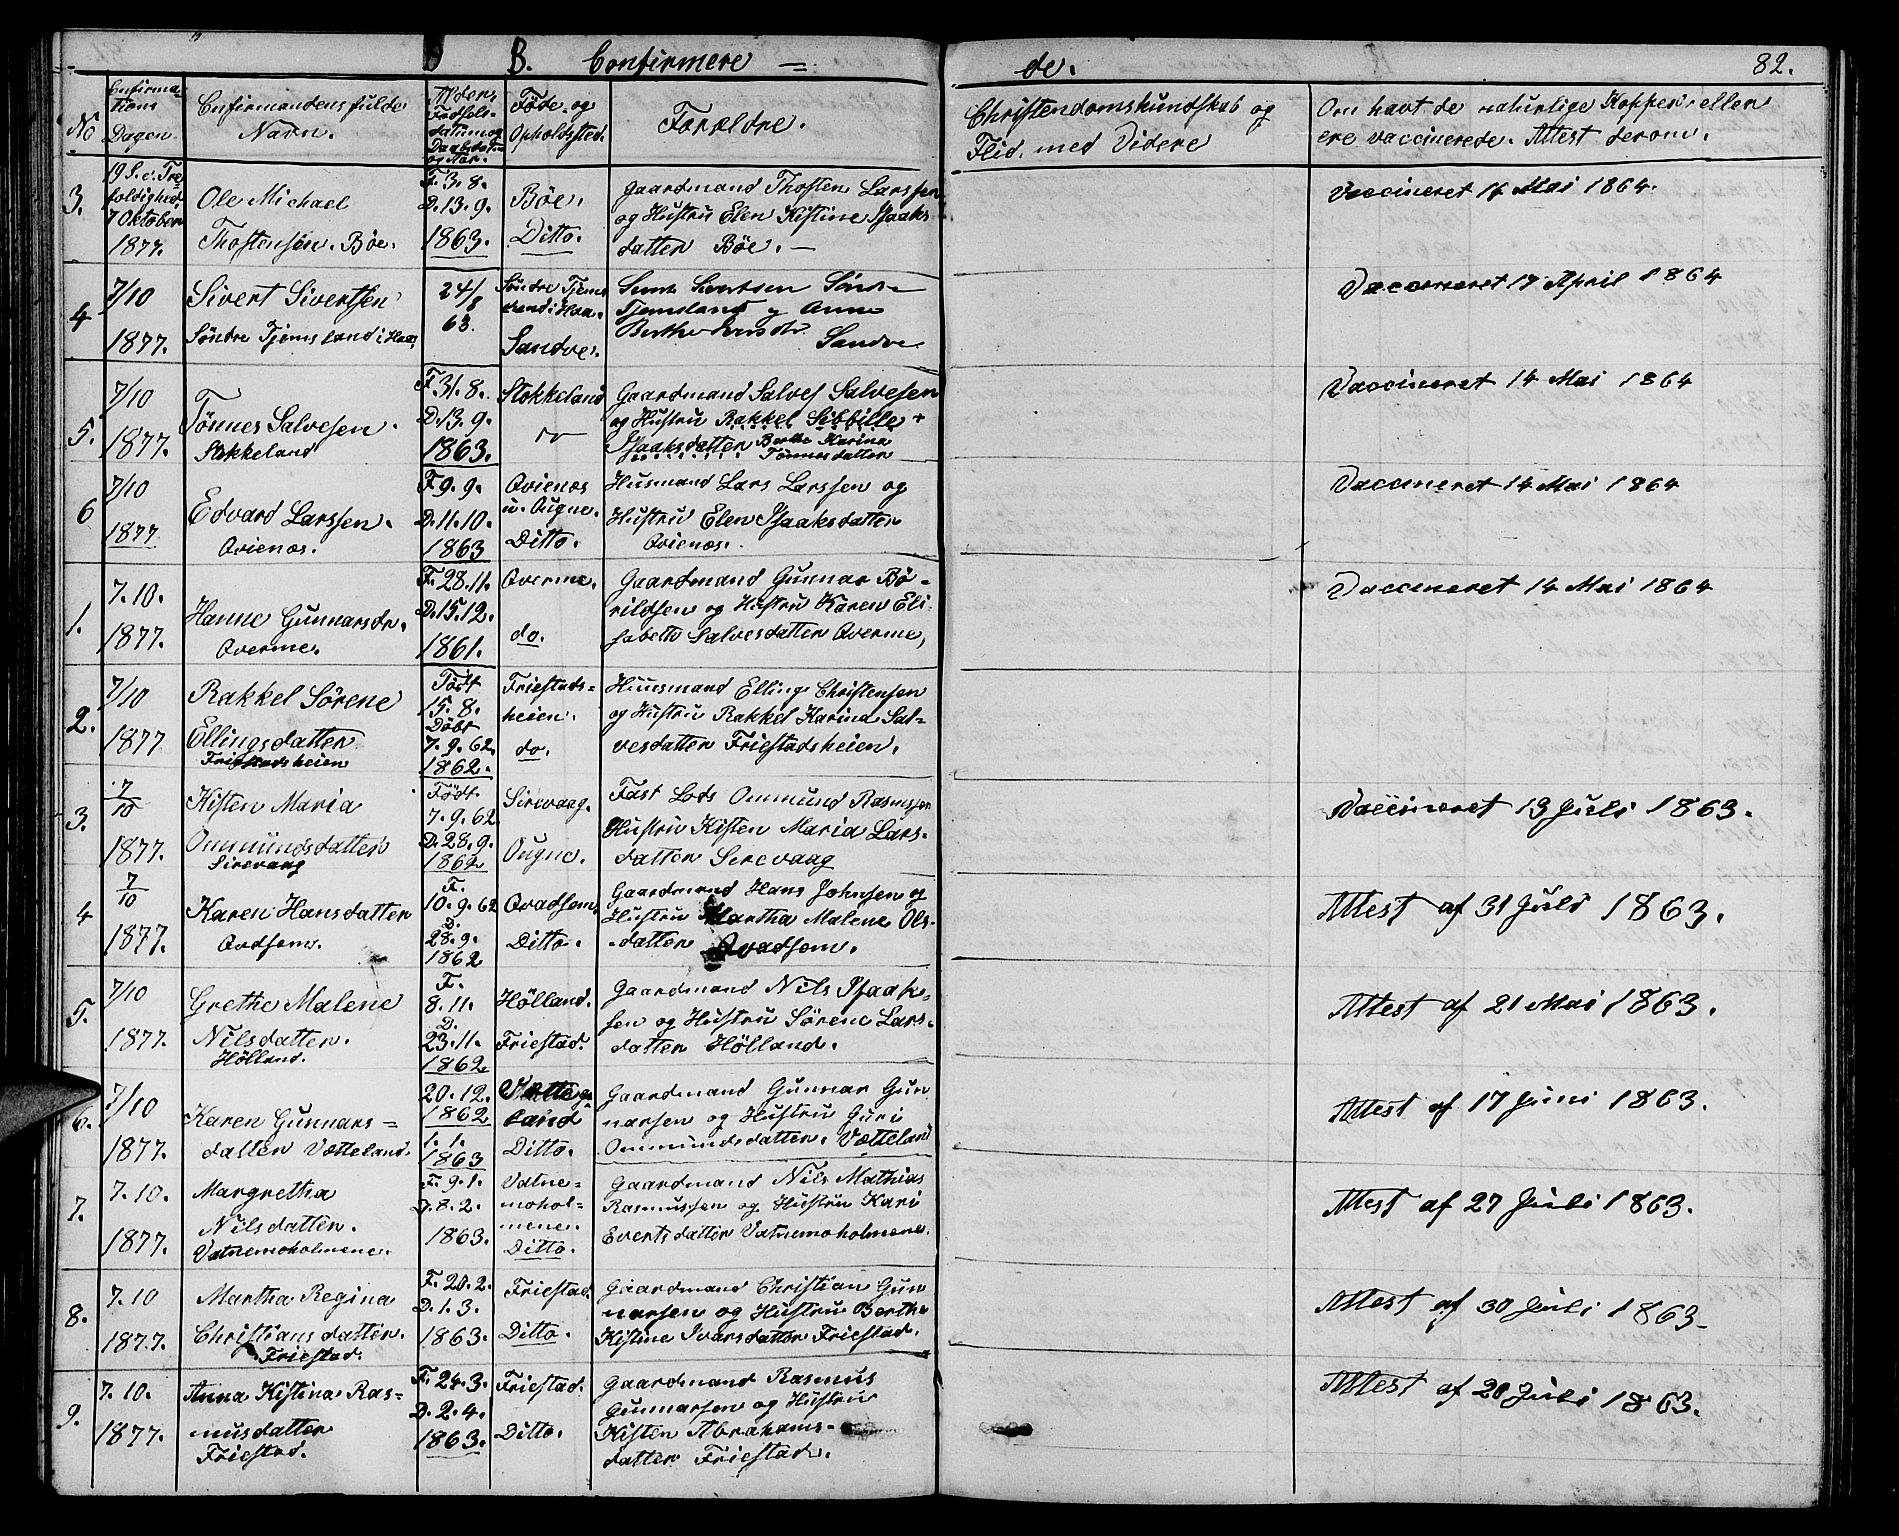 B. Confirmere =
de.
82.
No
Confirma-
tions
Dagen
Confirmandens fulde
Navn.
Føde- og
Opholdssted.
Forældre.
Christendomskundskab og
Flid. med Videre
Om havt de naturlige Kopper eller
ere vaccinerede. Attest derom.
3.
19 S. e. Tre-
foldighed
7 Oktober
1877.
Ole Michael
Thostensen. Bøe.
F. 3. 8.
D. 13. 9.
1863.
Bøe.
Ditto.
Gaardmand Thosten Larssen
og Hustru Elen Kistine Isaaks
datter Bøe. —
Vaccineret 14 Mai 1864.
4
7/10
1877.
Sivert Sivertsen
Søndre Tjemsland i Haa.
24/8
63.
Søndre Tjems
land i Haa.
Sandve.
Sivert Sivertsen Søndre
Tjemsland og Anne
Berthe
Sandve
Vaccineret 17 April 1864
5.
7/10
1877.
Tønnes Salvesen.
Stokkeland
F. 31. 8.
D. 13. 9.
1863.
Stokkeland
Gaardmand Salves Salvesen
og Hustru Rakkel Sibbille +
Isaaksdatter Berthe Karina
Tønnesdatter
Vaccineret 14 Mai 1864
6
7/10
1877
Edvard Larssen.
Qvienæs.
F. 9. 9.
D. 11. 10.
1863
Qvienæs
u. Ougne.
Ditto.
Husmand Lars Larssen og
Hustru Elen Isaaksdatter
Qvienæs.
Vaccineret 14 Mai 1864
1.
7. 10.
1877.
Hanne Gunnarsdr.
Overme.
F. 28. 11.
D. 15. 12.
1861.
Overme.
do.
Gaardmand Gunnar Bø-
rildsen og Hustru Karen Eli-
sabeth Salvesdatter Overme,
Vaccineret 14 Mai 1864
2.
7/10
1877
Rakkel Sørene
Ellingsdatter
Friestadsheien
Født
15. 8.
Døbt
7. 9. 62.
1862.
Friestads=
heien.
do.
Huusmand Elling Christensen
og Hustru Rakkel Karina Sal-
vesdatter Friestadsheien.
3.
7/10
1877.
Kisten Maria
Ommundsdatter
Sirevaag
Født
7. 9. 62
D. 28. 9.
1862
Sirevaag.
Ougne.
Fast Lods Ommund Rasmssen
Hustru Kisten Maria Lars-
datter Serevaag
Vaccineret 13 Juli 1863.
4
7/10
1877.
Karen Hansdatter
Qvadsem.
F.
10. 9. 62
D.
28. 9.
1862
Qvadsem.
Ditto.
Gaardmand Hans Johnsen og
Hustru Martha Malene Ols-
-datter Qvadsem.
Attest af 31 Juli 1863.
5.
7/10
1877.
Grethe Malene
Nilsdatter.
Hölland.
F.
8. 11.
D.
23. 11.
1862.
Hölland.
Friestad.
Gaardmand Nils Isaak-
sen og Hustru Sørene Lars-
datter Hölland.
Attest af 21 Mai 1863.
6.
7/10
1877.
Karen Gunnars=
datter Vætteland.
20. 12.
1862
1. 1.
1863
Vætte-
land
Ditto.
Gaardmand Gunnar Gun
narsen og Hustru Guri
Ommundsdatter. Vætteland
Attest af 17 Juni 1863.
7.
7. 10.
1877.
Margretha
Nilsdatter.
Vatnemoholmene.
F. 9. 1.
D. 8. 2.
1863.
Vatne=
mohol=
mene.
Ditto.
Gaardmand Nils Mathias
Rasmussen og Hustru Kari
Evertsdatter Vatnemoholmene.
Attest af 27 Juli 1863.
8.
7. 10
1877.
Martha Regina
Christiansdatter.
Friestad.
F. 20. 2.
D. 1. 3.
1863.
Friestad.
Ditto.
Gaardmand Christian Gun
narsen og Hustru Berthe
Kistine Ivarsdatter Friestad.
Attest af 30 Juli 1863.
9.
7. 10.
1877.
Anna Kistina Ras=
musdatter
Friestad.
F. 24. 3.
D. 2. 4.
1863.
Friestad.
Ditto.
Gaardmand Rasmus
Gunnarsen og Hustru
Kisten Abrahams-
datter Friestad.
Attest af 20 Juli 1863.